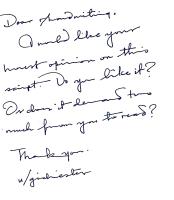 Dear r/handwriting.
I would like your
honest opinion on this
script. Do you like it?
Or does it demand too
much from you to read?
Thank you.